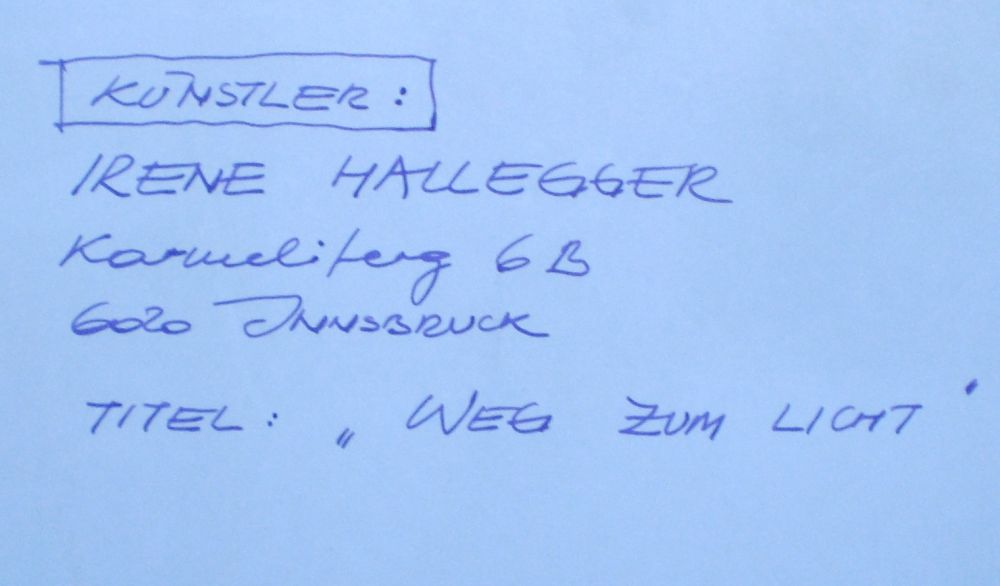 KÜNSTLER:
IRENE HALLEGGER
Karmeliterg 6B
6020 INNSBRUCK
TITEL: „ WEG ZUM LICHT "